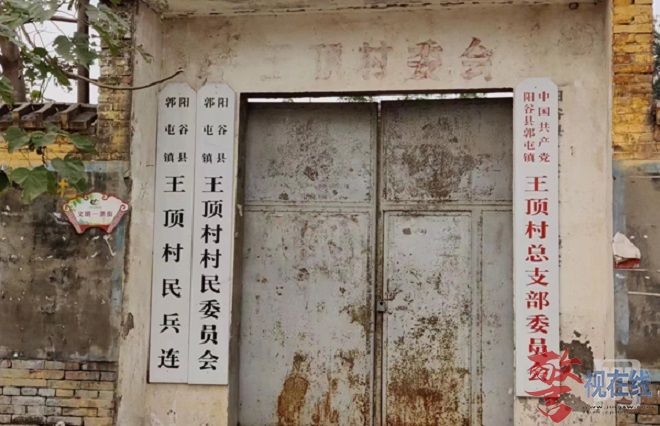 王顶村委会
阳谷县
郭屯镇
王顶村民兵连
阳谷县
郭屯镇
王顶村村民委员会
中国共产党
阳谷县郭屯镇
王顶村总支部委员会
阳谷县
警视在线